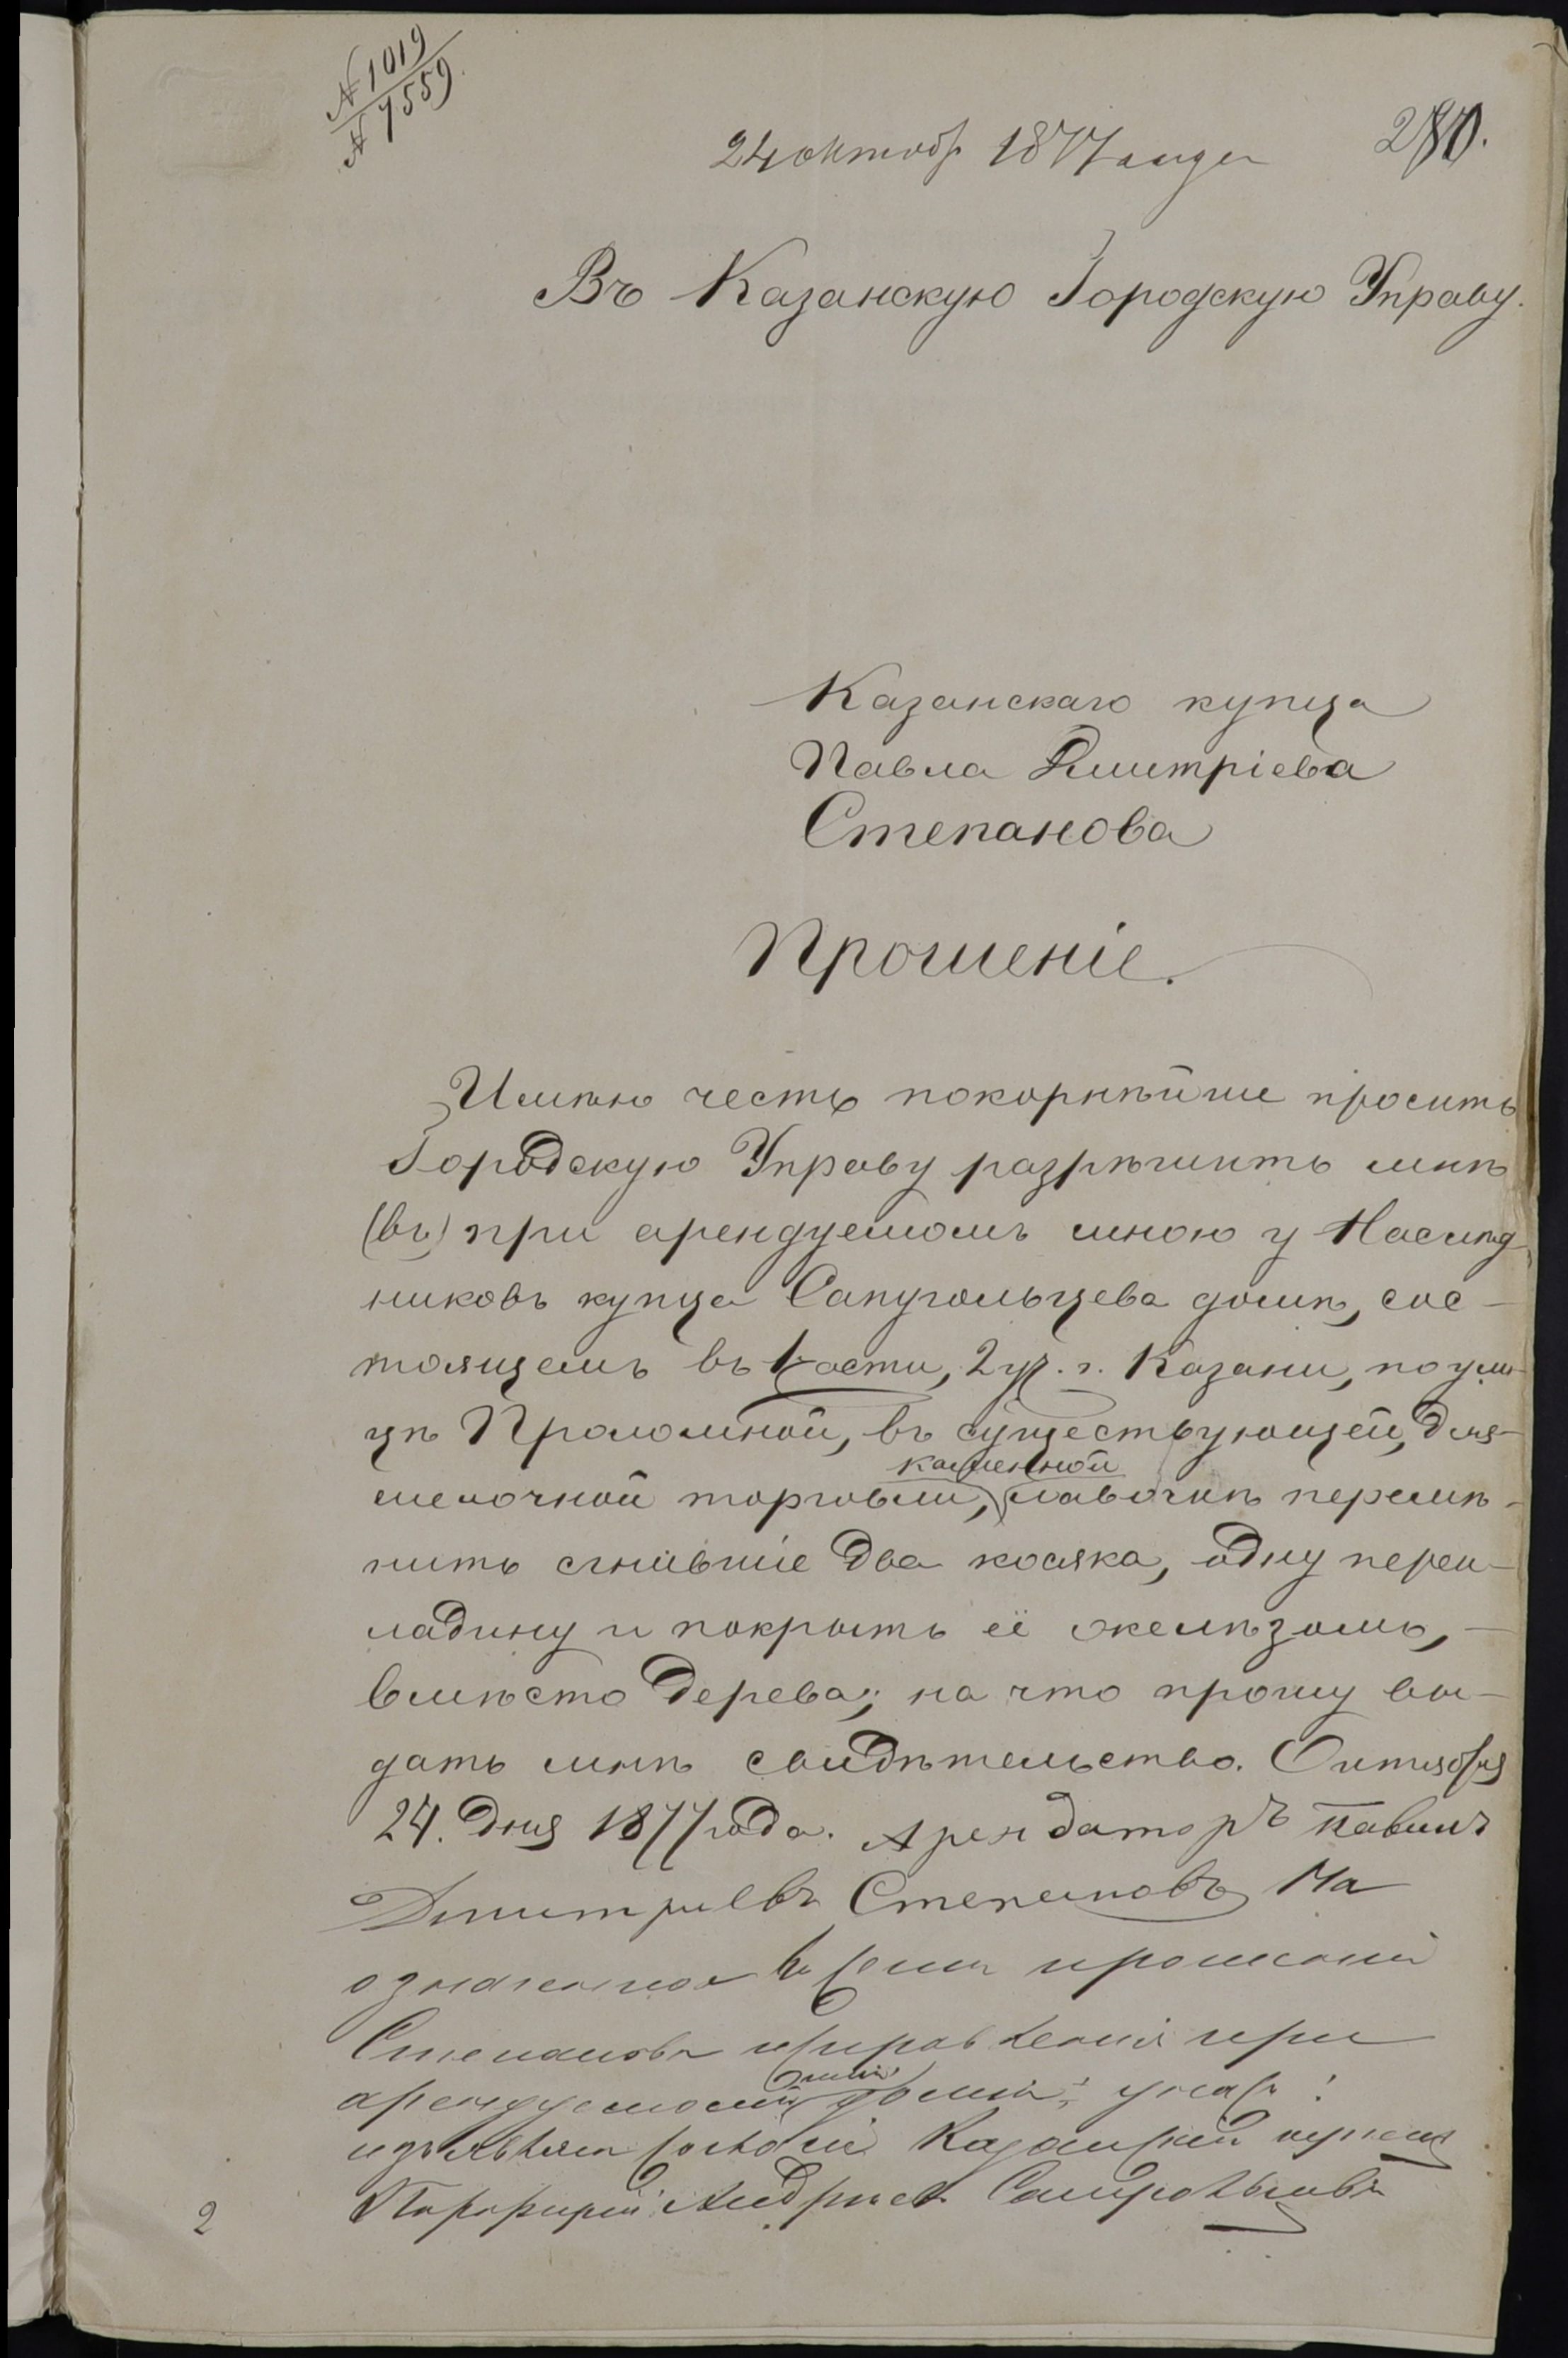 N 1019
N 7559.
24 октяб 1877 года
280.
Въ Казанскую Городскую Управу.
Казанскаго купца
Павла Дмитріева
Степанова
Прошеніе.
Имѣю честь покорнѣйше просить
Городскую Управу разрѣшить мнѣ
(въ) при арендуемомъ мною у Наслѣд-
никовъ купца Сапугольцева домѣ, сос-
тоящемъ въ 1 части, 2 уч. г. Казани, по ули-
цѣ Проломной, въ существующей, для
каменной
мелочной торговли, лавочкѣ перемѣ-
нить сгнившіе два косяка, одну перек-
ладину и покрыть её желѣзомъ,
вмѣсто дерева; на что прошу вы-
дать мнѣ свидѣтельство. Октября
24. дня 1877 года. Арендаторъ Павилъ
Дмитриевъ Степановъ На
означенное въ семъ прошении
Степанова исправления при
арендуемомъ домѣ
изъявляю согласие Казанский купецъ
Порфирий Андреев
2